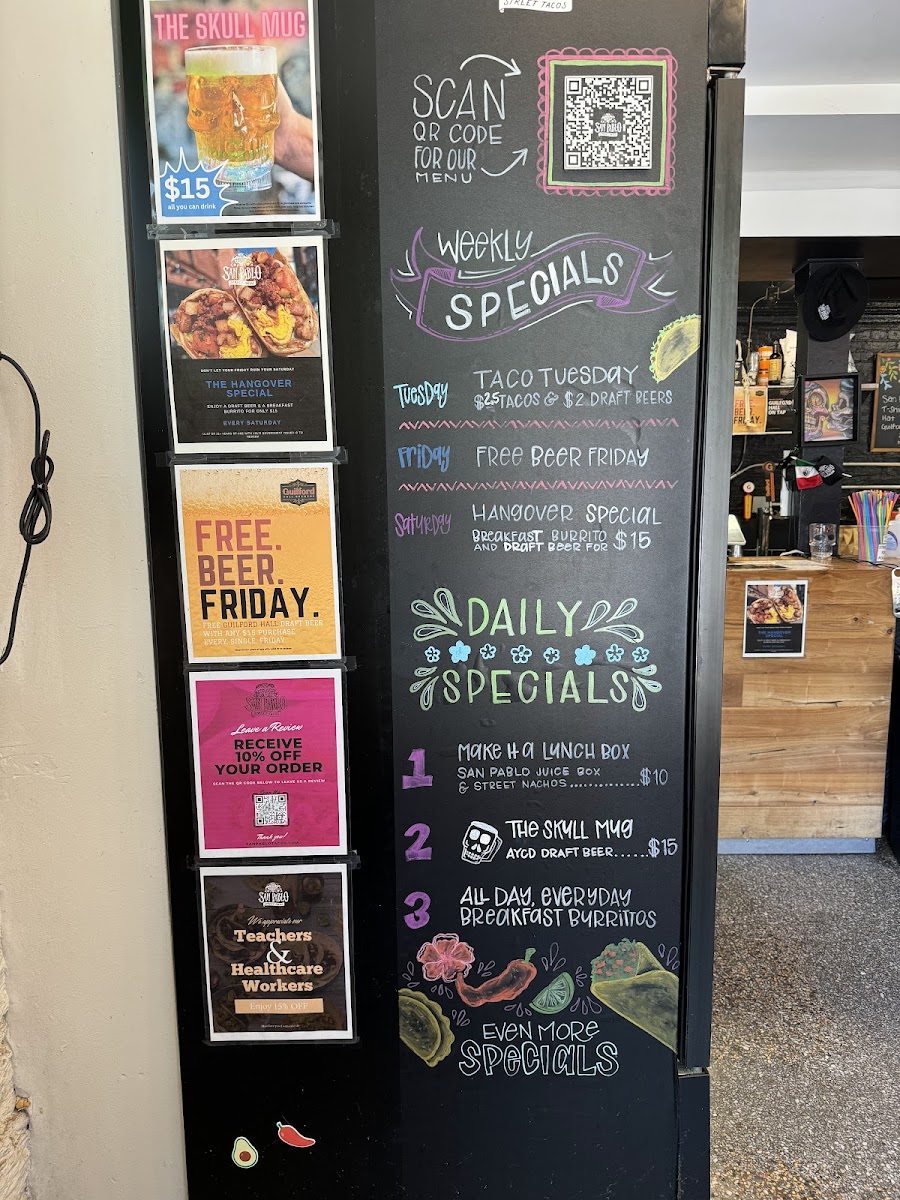 THE SKULL MUG
$15
all you can drink
SAN PABLO
DON'T LET YOUR FRIDAY RUIN YOUR SATURDAY
THE HANGOVER
SPECIAL
ENJOY A DRAFT BEER & A BREAKFAST
BURRITO FOR ONLY $15
EVERY SATURDAY
Guilford
HALL BREWERY
FREE.
BEER.
FRIDAY.
FREE GUILFORD HALL DRAFT BEER
WITH ANY $15 PURCHASE
EVERY. SINGLE. FRIDAY.
SAN PABLO
Leave a Review
RECEIVE
10% OFF
YOUR ORDER
SCAN THE QR CODE BELOW TO LEAVE US A REVIEW
Thank you!
SAN PABLO
We appreciate our
Teachers
&
Healthcare
Workers
Enjoy 15% OFF
STREET TACOS
SCAN
QR CODE
FOR OUR
MENU
SAN PABLO
WEEKLY
SPECIALS
TUESDAY
TACO TUESDAY
$25 TACOS & $2 DRAFT BEERS
FRIDAY
FREE BEER FRIDAY
SATURDAY
HANGOVER SPECIAL
BREAKFAST BURRITO
AND DRAFT BEER FOR $15
DAILY
SPECIALS
1 MAKE IT A LUNCH BOX
SAN PABLO JUICE BOX
& STREET NACHOS................$10
2 THE SKULL MUG
AYCD DRAFT BEER......$15
3 ALL DAY, EVERYDAY
BREAKFAST BURRITOS
EVEN MORE
SPECIALS
THE HANGOVER
SPECIAL